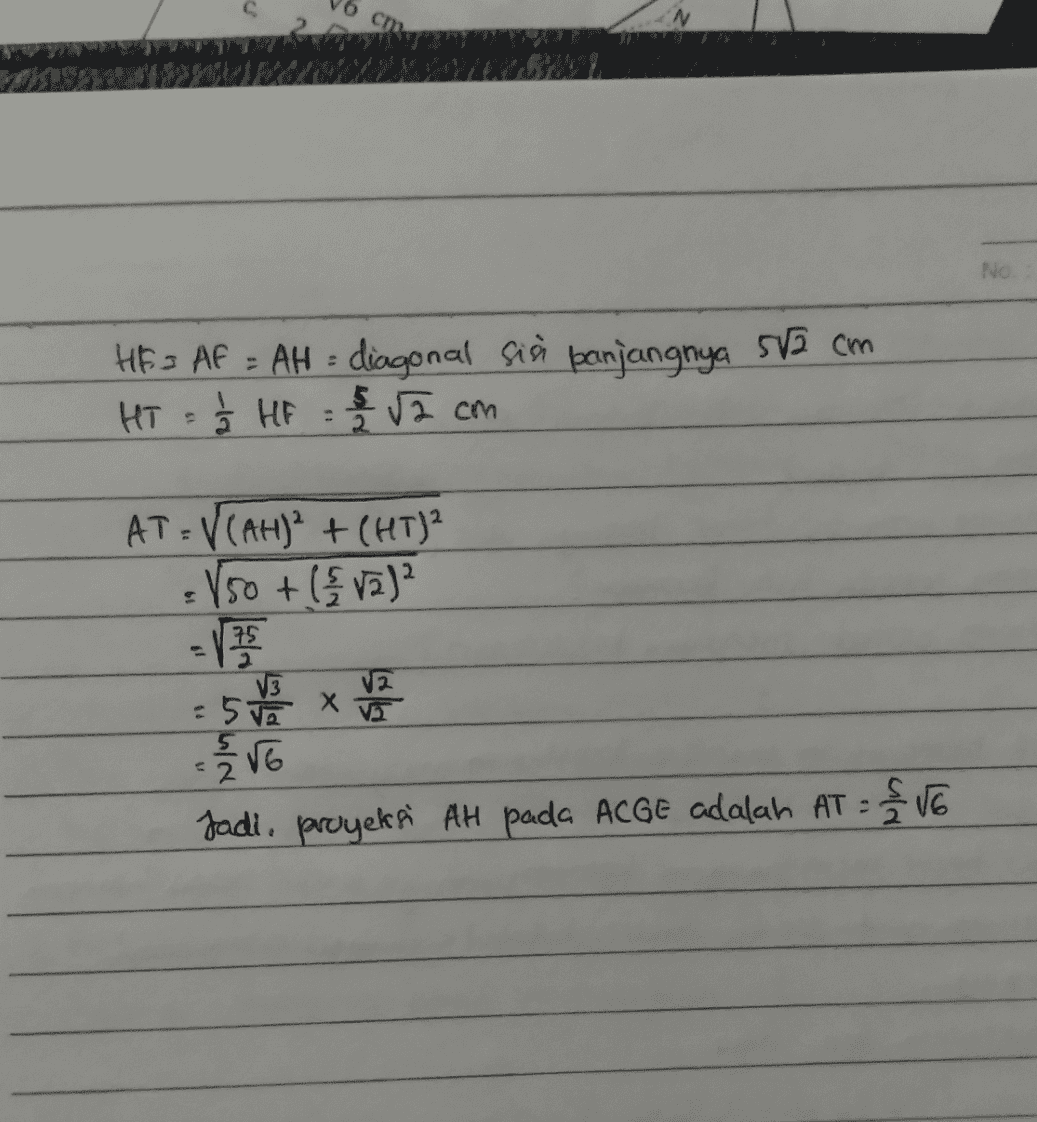 √6 cm
2
N
No. :
HF = AF = AH = diagonal sisi panjangnya 5√2 cm
HT = 1/2 HF = 5/2 √2 cm
AT = √((AH)² + (HT)²)
= √(50 + (5/2 √2)²)
= √(75/2)
= 5 √3/√2 × √2/√2
= 5/2 √6
Jadi, proyeksi AH pada ACGE adalah AT = 5/2 √6